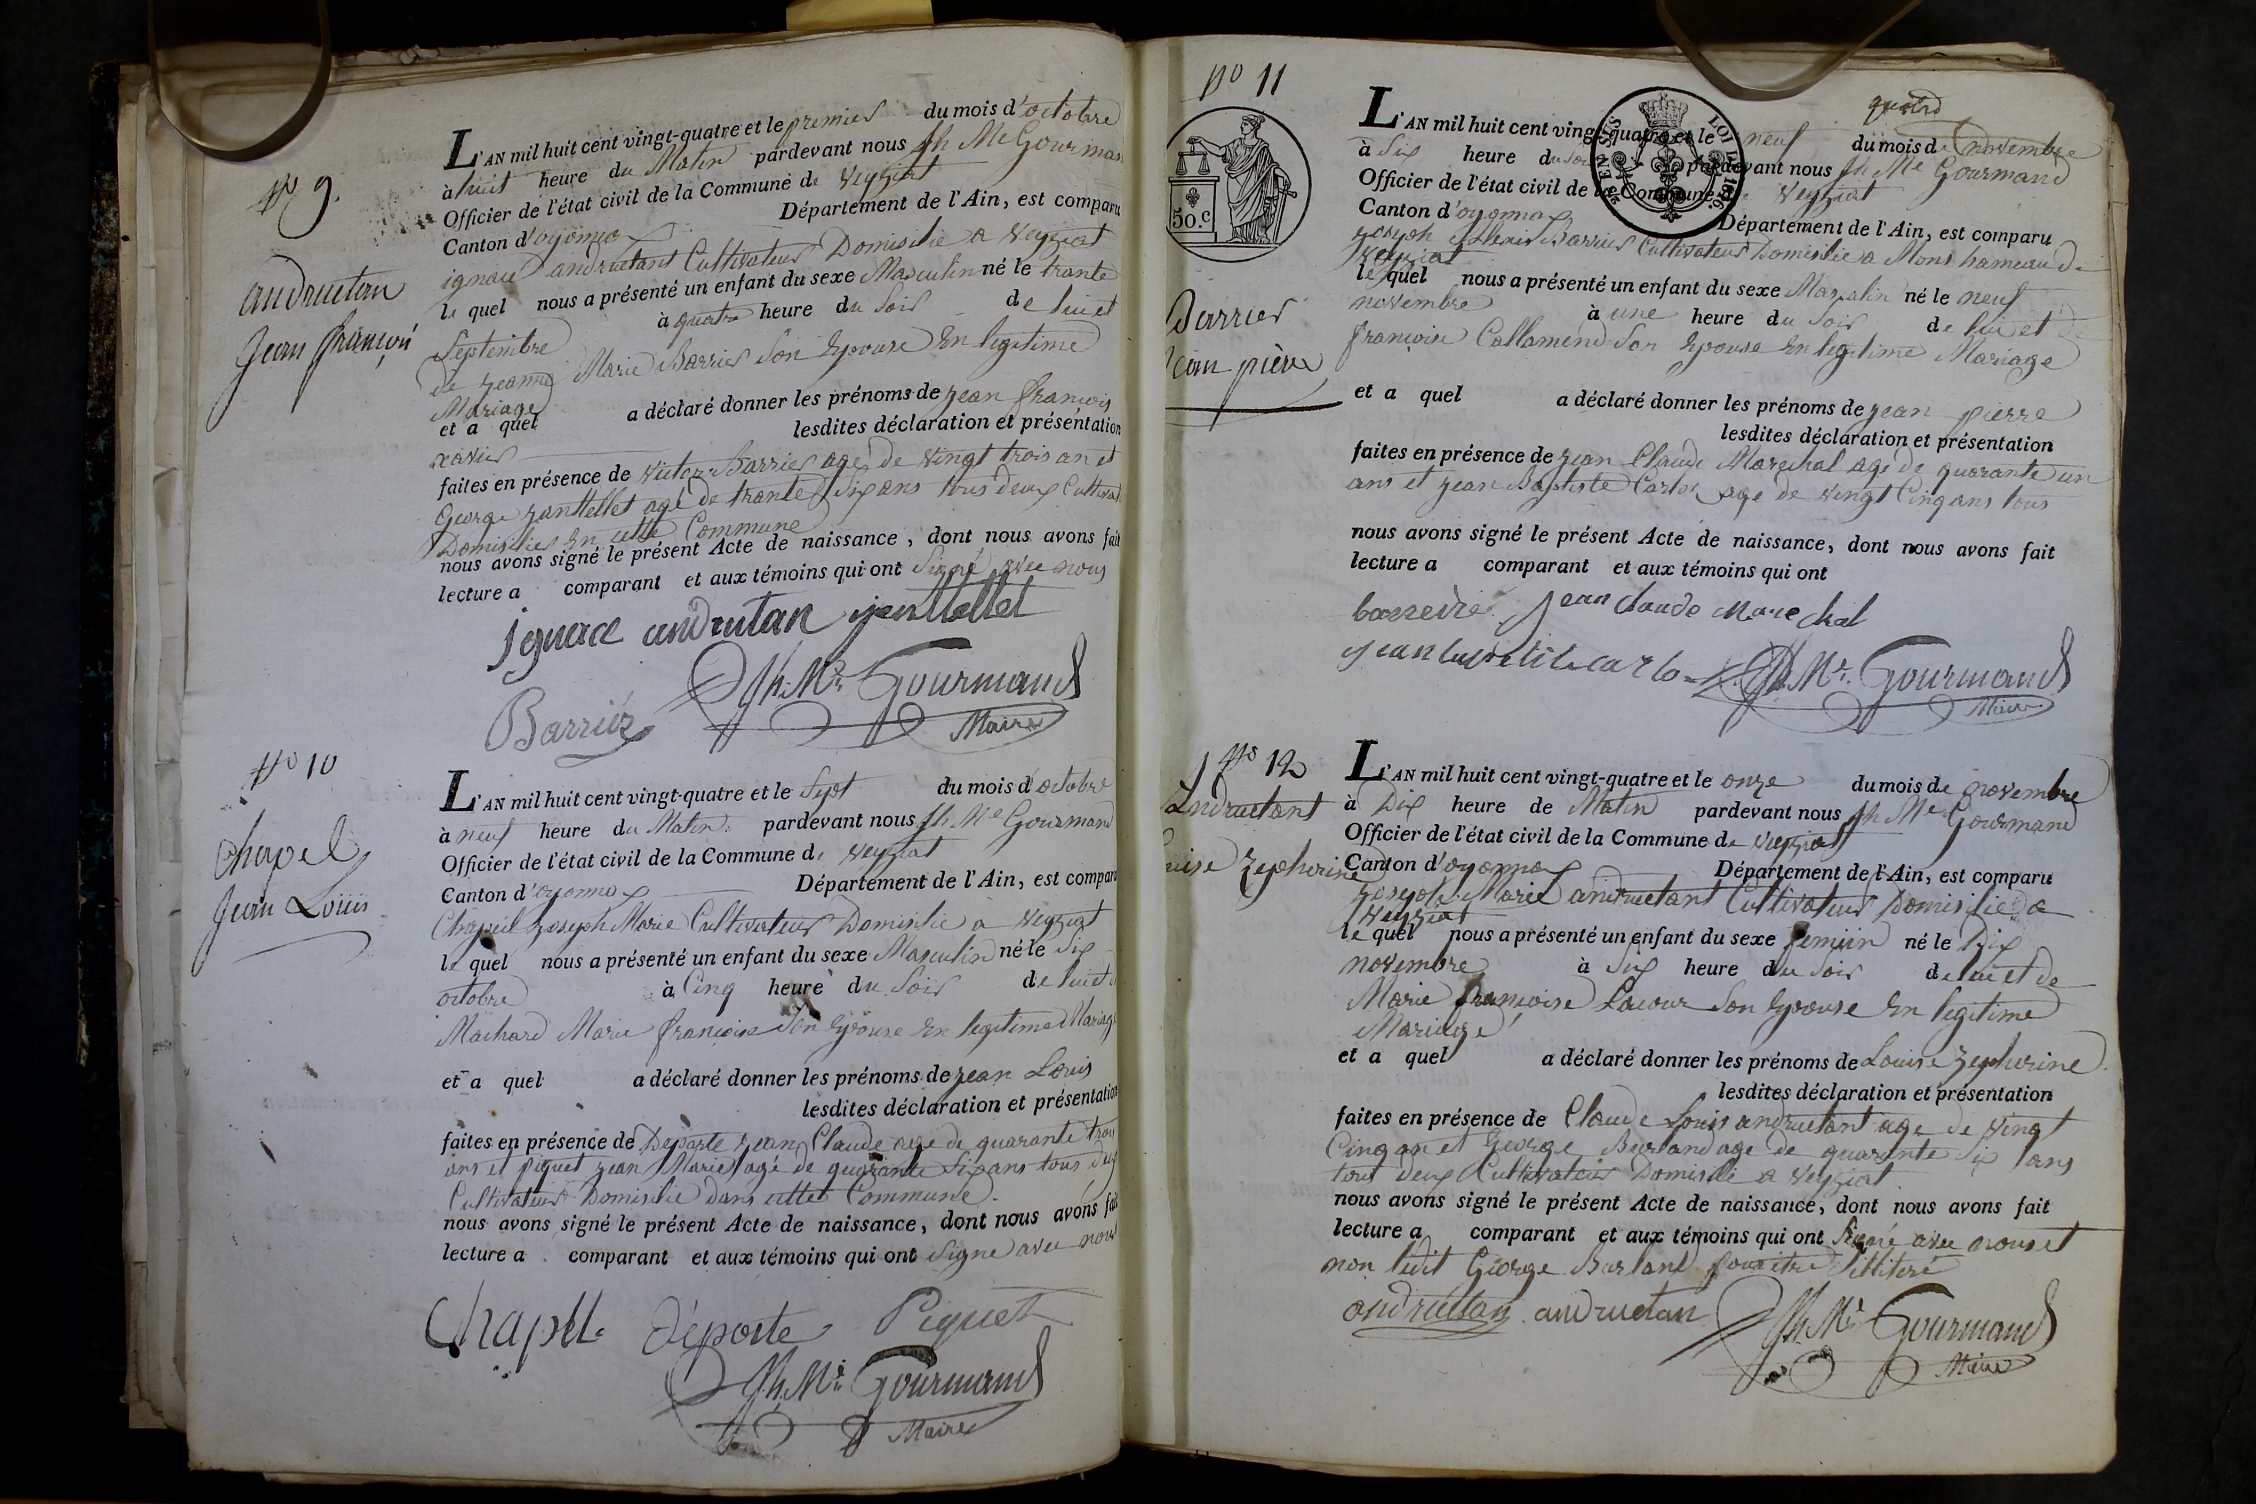 N° 9.
andructan
Jean françois
L'AN mil huit cent vingt-quatre et le premier du mois d'octobre
à huit heure du Matin pardevant nous Jh Me Gourman
Officier de l'état civil de la Commune de Veyziat
Canton d'oyonnax Département de l'Ain, est comparu
ignace andructant Cultivateur Domisilié a Veyziat
le quel nous a présenté un enfant du sexe Masculin né le trante
Septembre à quatre heure du Soir de lui et
de jeanne Marie Barrier Son Epouse En legitime
Mariage
et a quel a déclaré donner les prénoms de jean françois
xavier lesdites déclaration et présentation
faites en présence de Victor Barrier agé de vingt trois an et
George janttellet agé de trante Six ans tous deux Cultivat
Domisiliés En cette Commune
nous avons signé le présent Acte de naissance, dont nous avons fait
lecture a comparant et aux témoins qui ont Signé avec nous
Ignace andrutan janttellet
Jh. Me. Gourmand
Barriéz Maire
N° 10
Chapel
Jean Louis
L'AN mil huit cent vingt-quatre et le Sept du mois d'octobre
à neuf heure du Matin pardevant nous Jh Me Gourmand
Officier de l'état civil de la Commune de Veyziat
Canton d'oyonnax Département de l'Ain, est comparu
Chapeil joseph Marie Cultivateur Domisilié a Veyziat
le quel nous a présenté un enfant du sexe Masculin né le Six
octobre à Cinq heure du Soir de lui et d
Machard Marie françoise Son Epouse En legitime Mariage
et a quel a déclaré donner les prénoms de jean Louis
lesdites déclaration et présentation
faites en présence de Deporte jean Claude age de quarante trois
ans et piquet jean Marie agé de quarante Six ans tous deux
Cultivateur Domisilié dans cette Commune.
nous avons signé le présent Acte de naissance, dont nous avons fait
lecture a comparant et aux témoins qui ont Signé avec nous
Chapell déporte Piquet
Jh. Me. Gourmand
Maire
N° 11
50.C
Barrier
Jean pière
L'AN mil huit cent vingt-quatre et le neuf du mois de novembre
à Six heure du Soir pardevant nous Jh Me Gourmand
Officier de l'état civil de la Commune de Veyziat
Canton d'oyonnax Département de l'Ain, est comparu
joseph Alexis Barrier Cultivateur Domisilié a Mons hameau de
Veyziat
le quel nous a présenté un enfant du sexe Masculin né le neuf
novembre à une heure du Soir de lui et de
françoise Callamend Son Epouse En legitime Mariage
et a quel a déclaré donner les prénoms de jean pierre
lesdites déclaration et présentation
faites en présence de jean Claude Marechal agé de quarante un
ans et jean Baptiste Carlo age de vingt Cinq ans tous
nous avons signé le présent Acte de naissance, dont nous avons fait
lecture a comparant et aux témoins qui ont
Jean Claude Marechal
Jh. Me. Gourmand
Maire
N° 12
Andructant
Louise Zepherine
L'AN mil huit cent vingt-quatre et le onze du mois de novembre
à Dix heure de Matin pardevant nous Jh Me Gourmand
Officier de l'état civil de la Commune de Veyziat
Canton d'oyonnax Département de l'Ain, est comparu
joseph Marie andructant Cultivateur Domisilié a
Veyziat
le quel nous a présenté un enfant du sexe femiin né le Dix
novembre à Six heure du Soir de lui et de
Marie françoise Lacour Son Epouse En legitime
Mariage
et a quel a déclaré donner les prénoms de Louise Zepherine
lesdites déclaration et présentation
faites en présence de Claude Louis andructant age de vingt
Cinq an et George Burland age de quarante Six ans
tous deux Cultivateur Domisilié a Veyziat
nous avons signé le présent Acte de naissance, dont nous avons fait
lecture a comparant et aux témoins qui ont Signé avec nous et
non ledit George Burland pour être illitéré
andructan andructan
Jh. Me. Gourmand
Maire